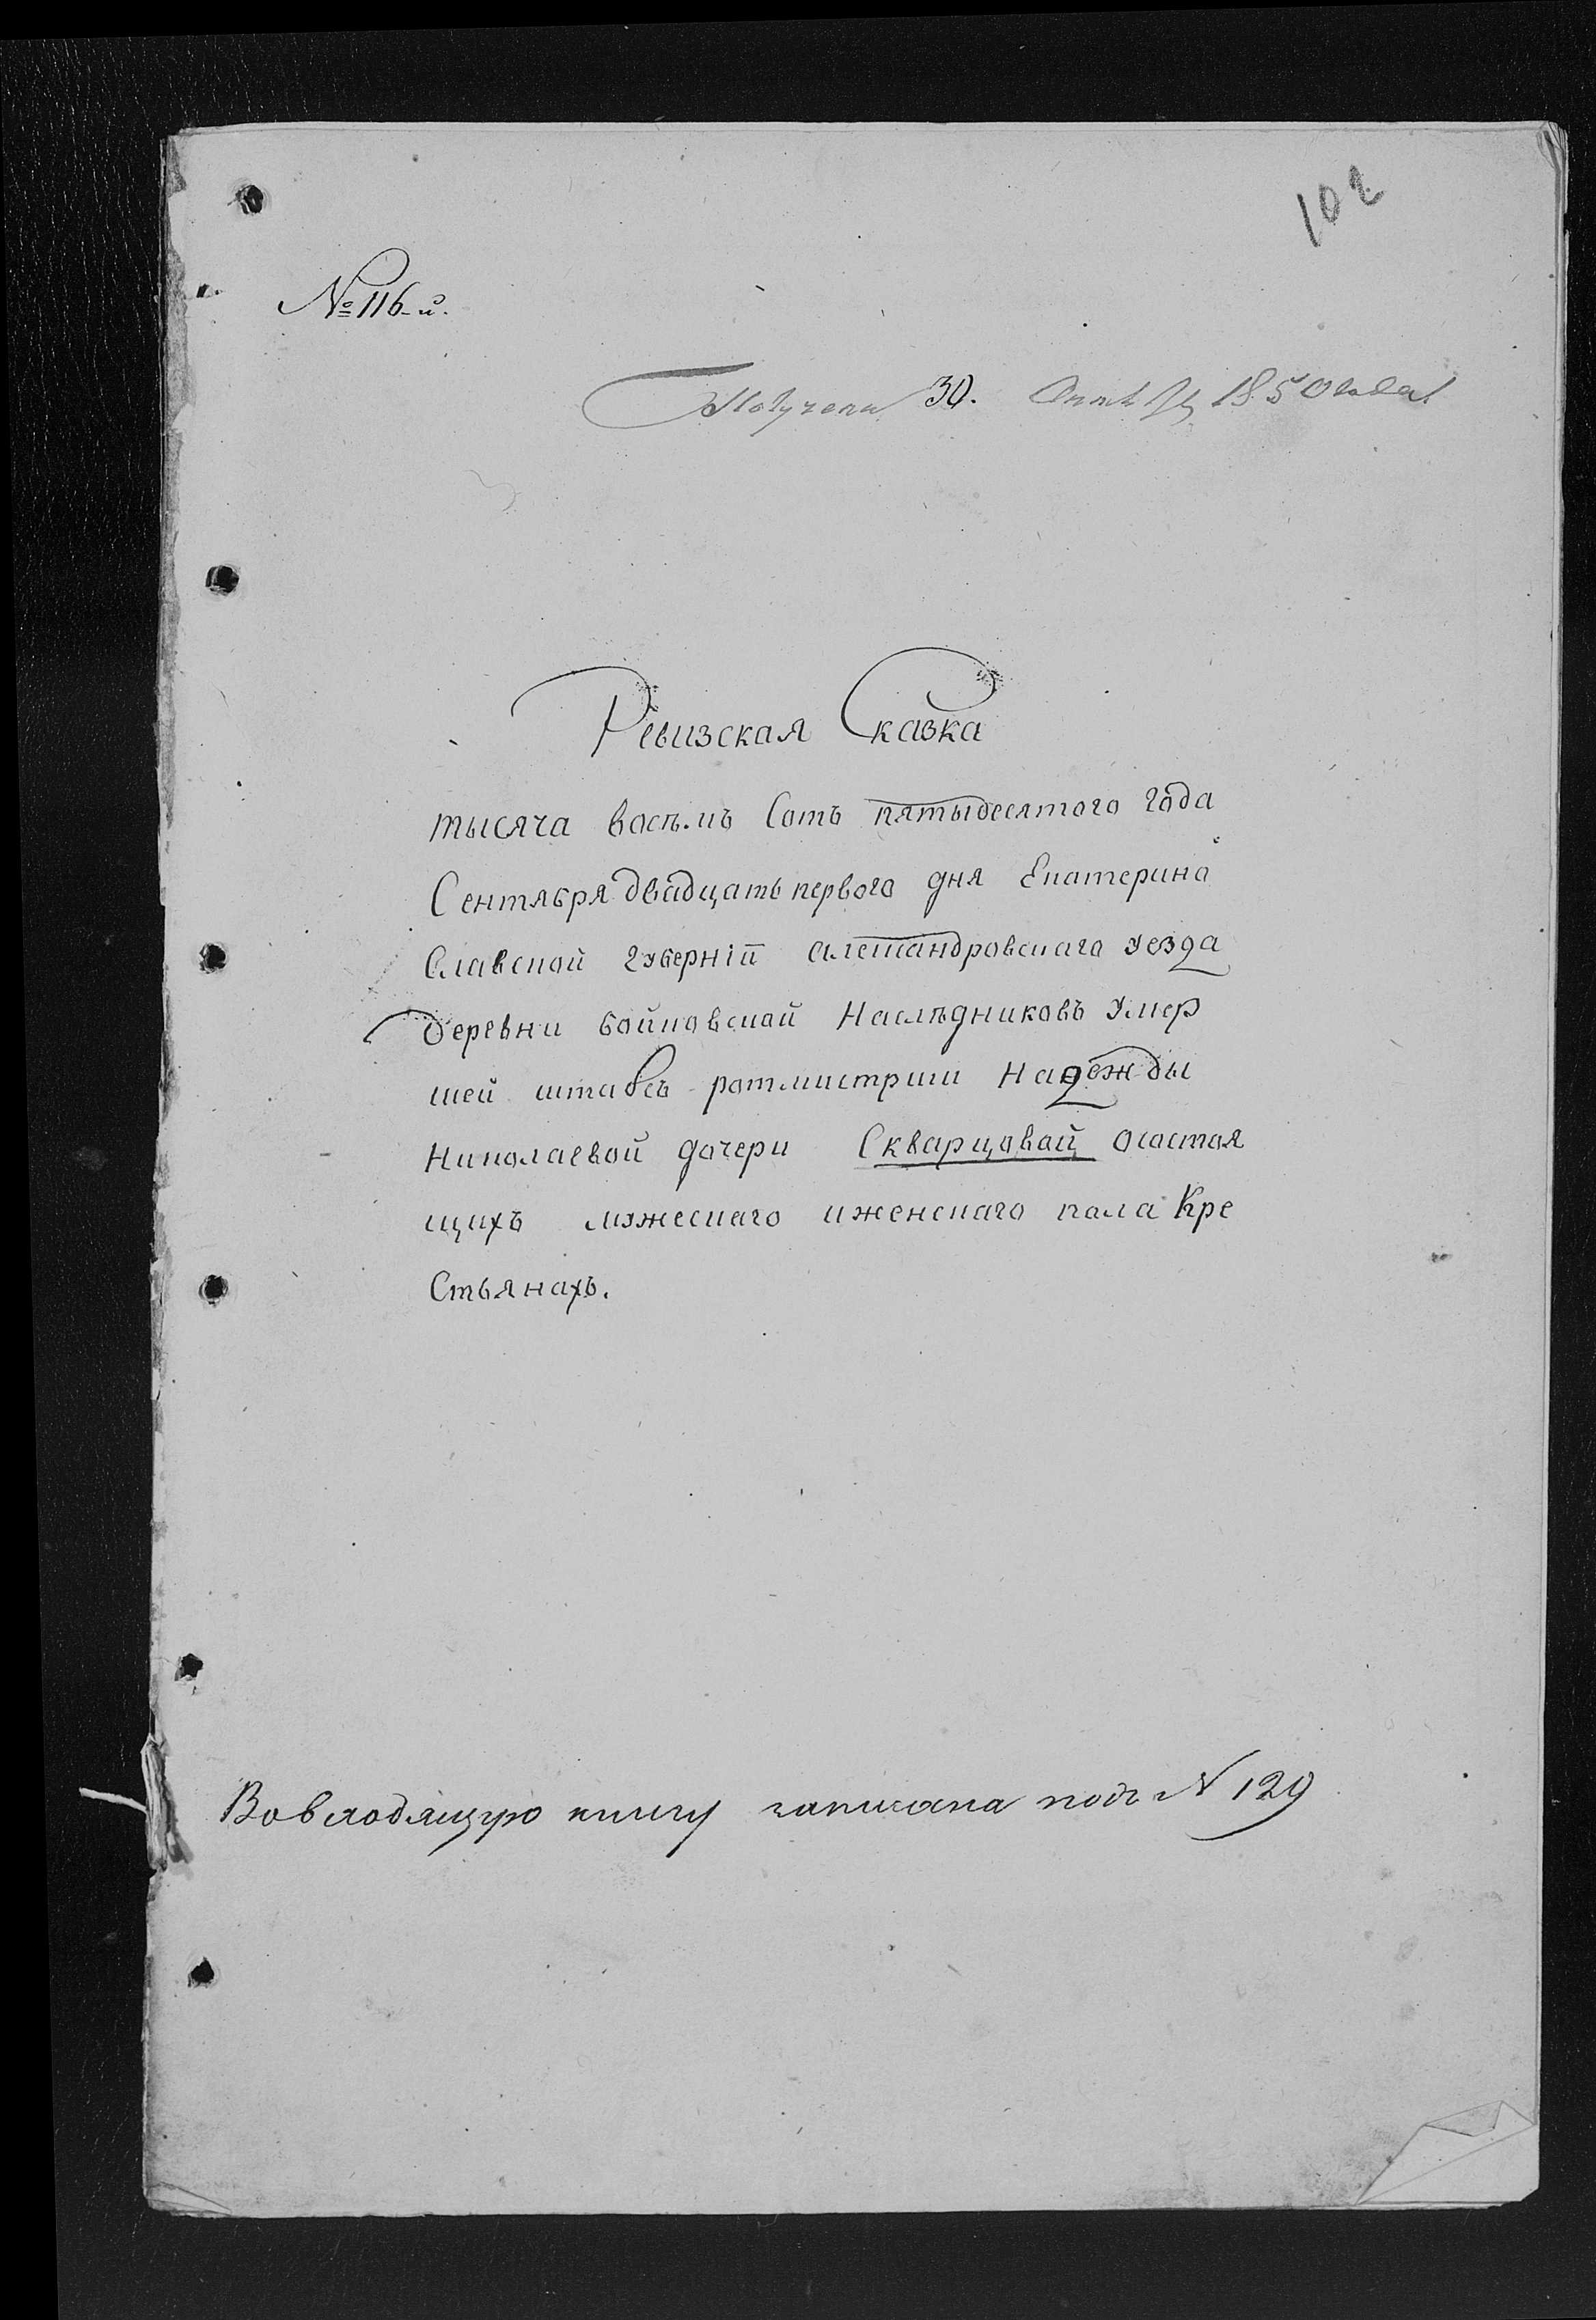 102
№ 116-й.
Получена 30. Октября 1850 года
Ревизская Сказка
тысяча восѣмъ Сотъ пятыдесятого года
Сентября двадцать первого дня Екатерино
Славской губерніи Александровскаго уезда
деревни войковской Наслѣдниковъ Умер
шей штабсъ ротмистрши Надежды
Николаевой дочери Скварцовай осастоя
щихъ мужескаго иженскаго пола Кре
Стьянахъ.
Вовходящую книгу записана подъ N 129